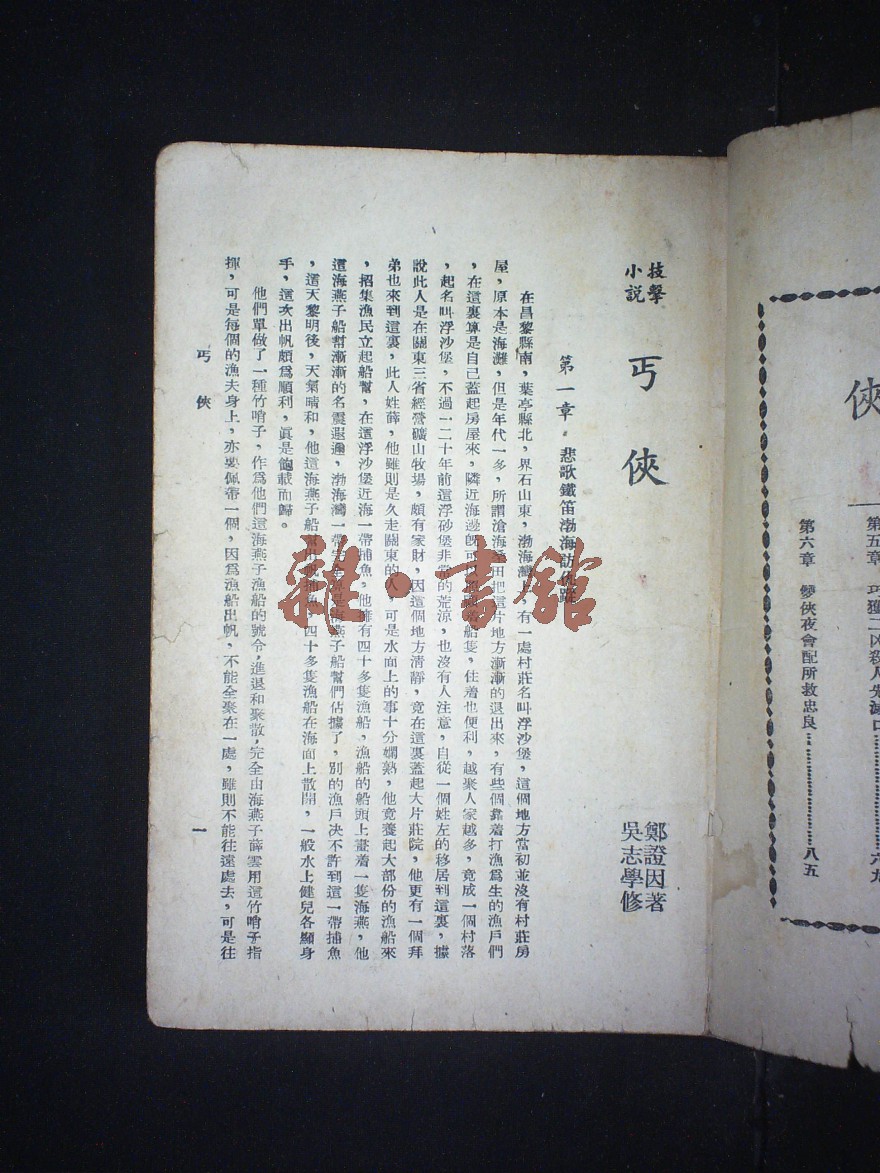 俠
第五章　巧獲二凶殺人先滅口…………六九
第六章　雙俠夜會配所救忠良…………八五
技擊
小說
丐俠
鄭證因著
吳志學修
第一章　悲歌鐵笛渤海訪俠蹤
在昌黎縣南，葉亭縣北，界石山東，渤海灣，有一處村莊名叫浮沙堡，這個地方當初並沒有村莊房
屋，原本是海灘，但是年代一多，所謂滄海桑田把這片地方漸漸的退出來，有些個靠着打漁爲生的漁戶們
，在這裏算是自己蓋起房屋來，隣近海邊旣可船隻，住着也便利，越聚人家越多，竟成一個村落
，起名叫浮沙堡，不過一二十年前這浮砂堡非常的荒涼，也沒有人注意，自從一個姓左的移居到這裏，據
說此人是在關東三省經營礦山牧場，頗有家財，因這個地方清靜，竟在這裏蓋起大片莊院，他更有一個拜
弟也來到這裏，此人姓薛，他雖則是久走關東的人，可是水面上的事十分嫻熟，他竟養起大部份的漁船來
，招集漁民立起船幫，在這浮沙堡近海一帶捕魚，他擁有四十多隻漁船，漁船的船頭上畫着一隻海燕，他
這海燕子船幫漸漸的名震遐邇，渤海灣一帶完全算是海燕子船幫們佔據了，別的漁戶决不許到這一帶捕魚
，這天黎明後，天氣晴和，他這海燕子船幫出帆捕魚，四十多隻漁船在海面上散開，一般水上健兒各顯身
手，這次出帆頗爲順利，眞是飽載而歸。
他們單做了一種竹哨子，作爲他們這海燕子漁船的號令，進退和聚散，完全由海燕子薛雲用這竹哨子指
揮，可是每個的漁夫身上，亦要佩帶一個，因爲漁船出帆，不能全聚在一處，雖則不能往遠處去，可是往
丐俠
一
雜·書館